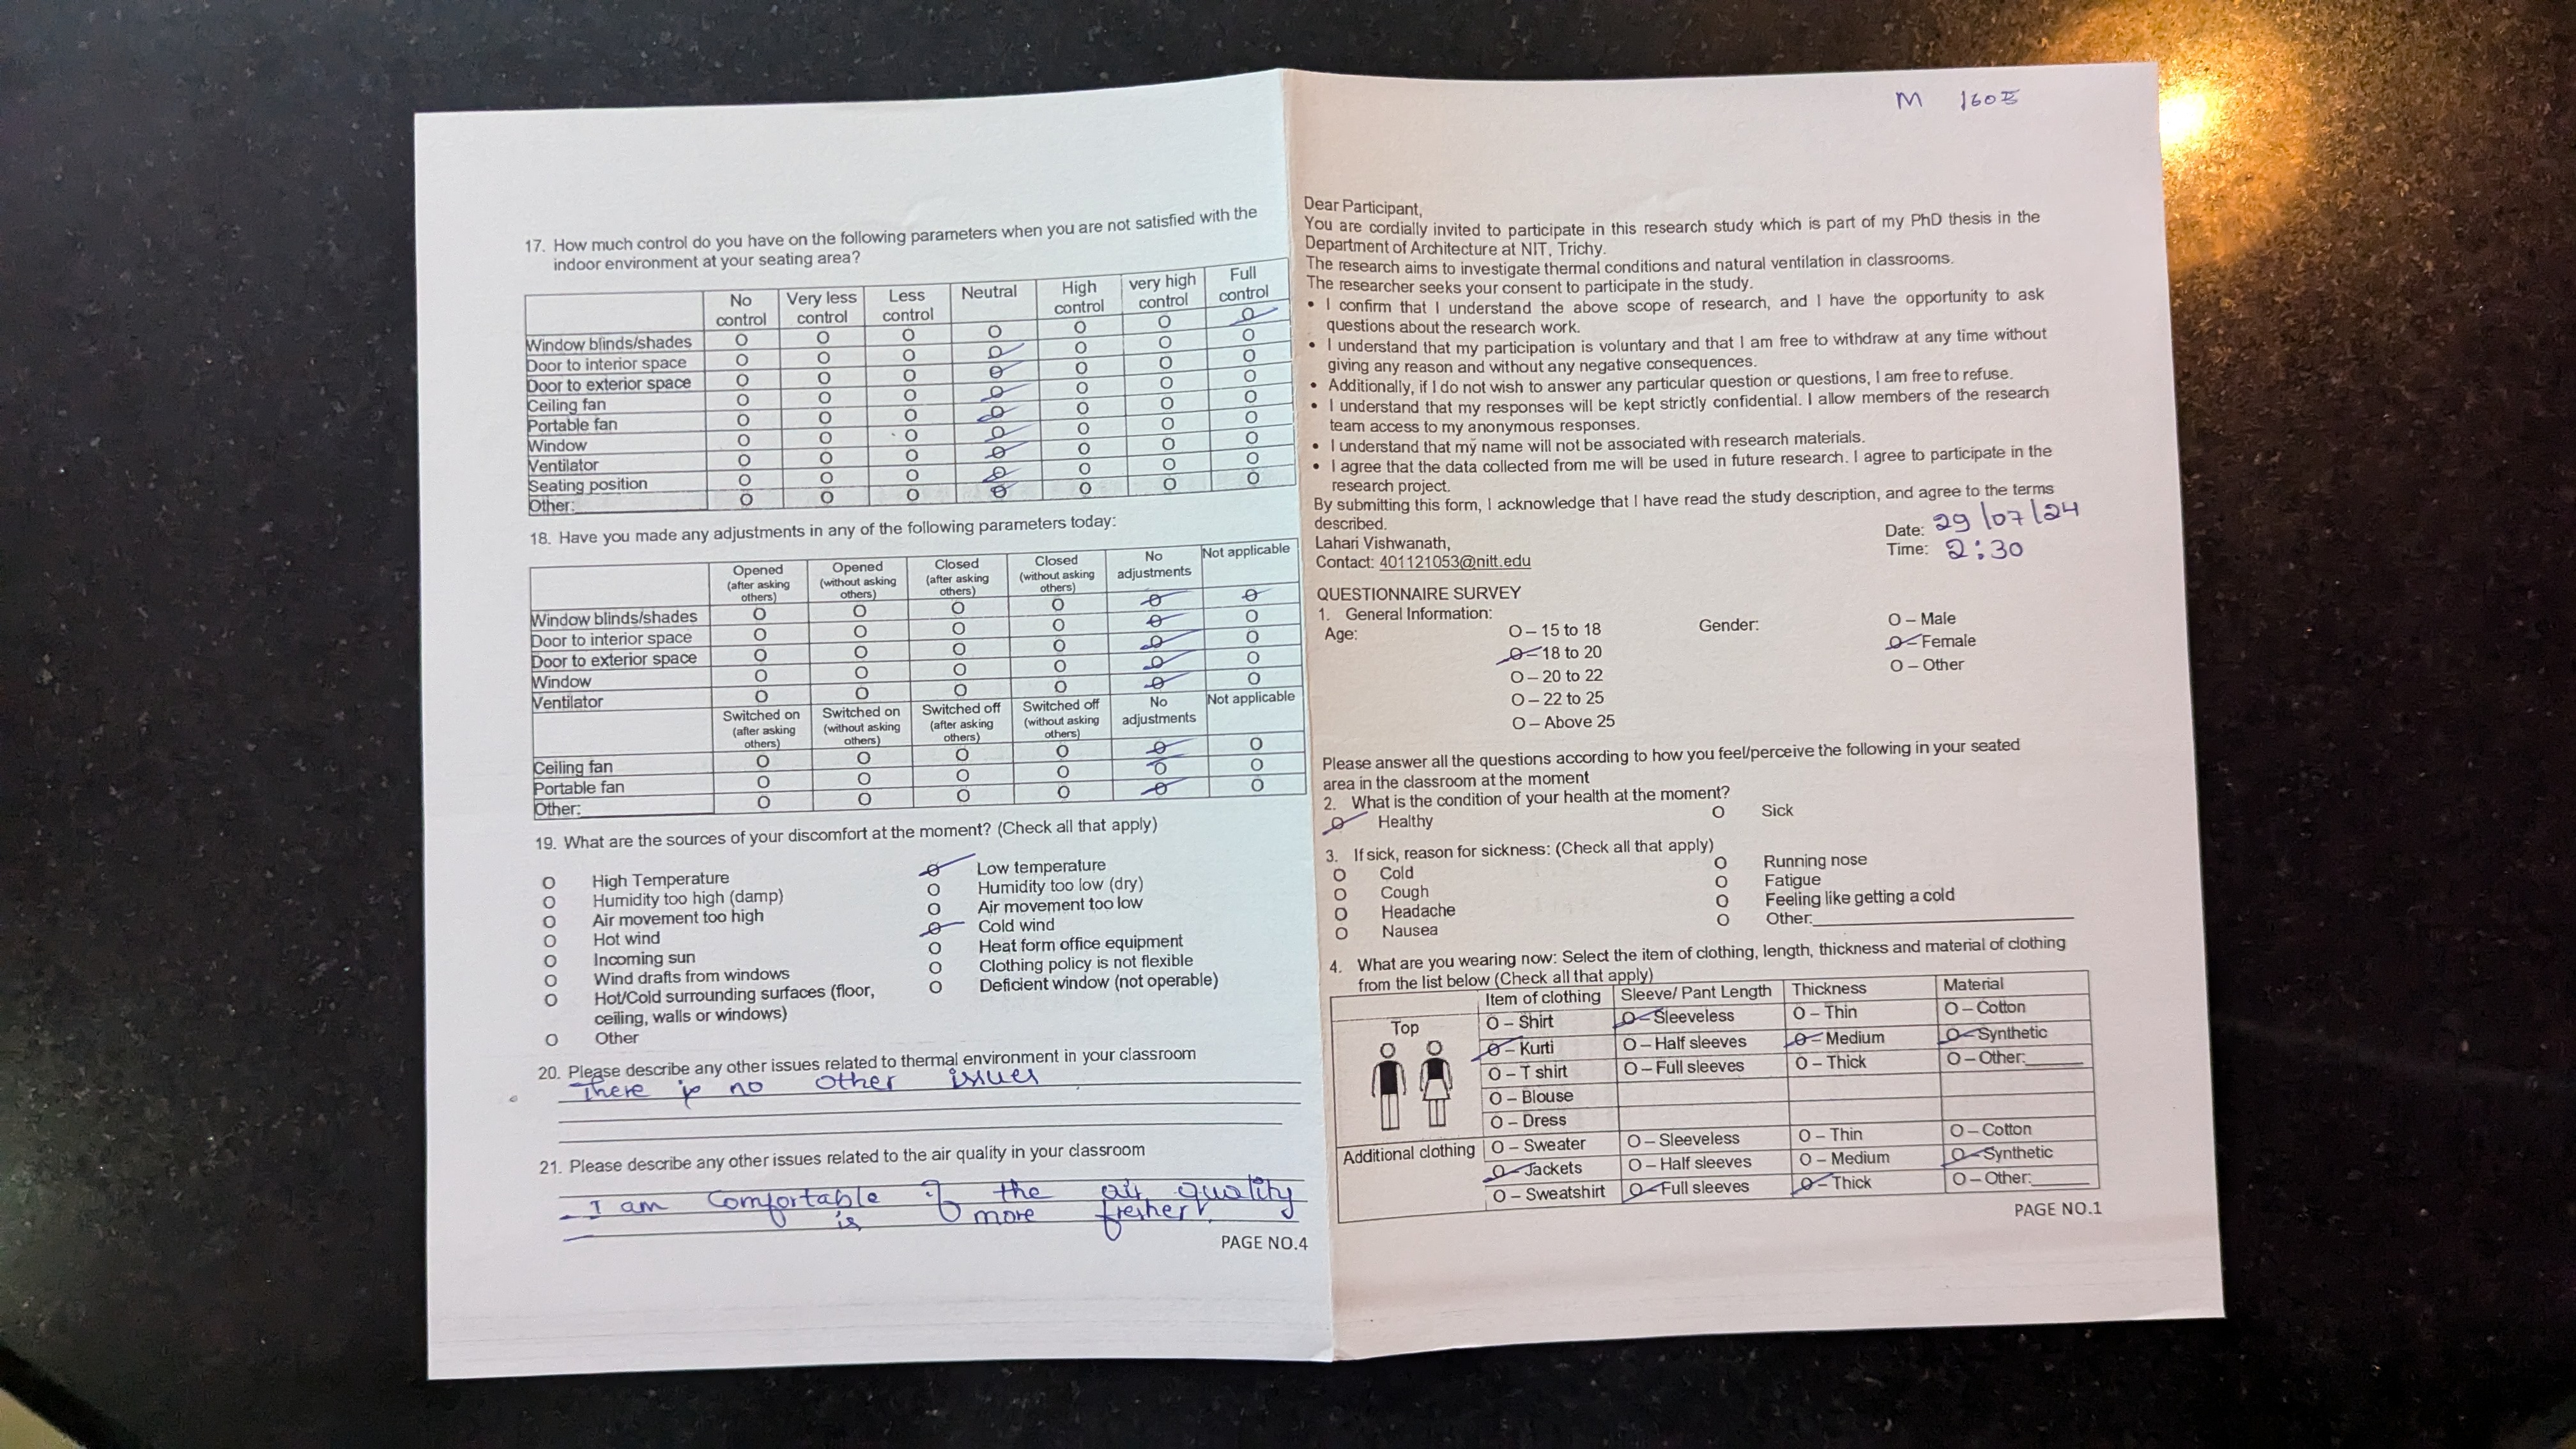 17. How much control do you have on the following parameters when you are not satisfied with the
indoor environment at your seating area?
No control Very less control Less control Neutral High control very high control Full control
Window blinds/shades O O O O O O O
Door to interior space O O O O O O O
Door to exterior space O O O O O O O
Ceiling fan O O O O O O O
Portable fan O O O O O O O
Window O O O O O O O
Ventilator O O O O O O O
Seating position O O O O O O O
Other: O O O O O O O
18. Have you made any adjustments in any of the following parameters today:
Opened (after asking others) Opened (without asking others) Closed (after asking others) Closed (without asking others) No adjustments Not applicable
Window blinds/shades O O O O O O
Door to interior space O O O O O O
Door to exterior space O O O O O O
Window O O O O O O
Ventilator O O O O O O
Switched on (after asking others) Switched on (without asking others) Switched off (after asking others) Switched off (without asking others) No adjustments Not applicable
Ceiling fan O O O O O O
Portable fan O O O O O O
Other: O O O O O O
19. What are the sources of your discomfort at the moment? (Check all that apply)
O High Temperature O Low temperature
O Humidity too high (damp) O Humidity too low (dry)
O Air movement too high O Air movement too low
O Hot wind O Cold wind
O Incoming sun O Heat form office equipment
O Wind drafts from windows O Clothing policy is not flexible
O Hot/Cold surrounding surfaces (floor, O Deficient window (not operable)
ceiling, walls or windows)
O Other
20. Please describe any other issues related to thermal environment in your classroom
There is no other issues
21. Please describe any other issues related to the air quality in your classroom
I am Comfortable if the air quality
is more fresher
PAGE NO.4
M
Dear Participant,
You are cordially invited to participate in this research study which is part of my PhD thesis in the
Department of Architecture at NIT, Trichy.
The research aims to investigate thermal conditions and natural ventilation in classrooms.
The researcher seeks your consent to participate in the study.
• I confirm that I understand the above scope of research, and I have the opportunity to ask
questions about the research work.
• I understand that my participation is voluntary and that I am free to withdraw at any time without
giving any reason and without any negative consequences.
• Additionally, if I do not wish to answer any particular question or questions, I am free to refuse.
• I understand that my responses will be kept strictly confidential. I allow members of the research
team access to my anonymous responses.
• I understand that my name will not be associated with research materials.
• I agree that the data collected from me will be used in future research. I agree to participate in the
research project.
By submitting this form, I acknowledge that I have read the study description, and agree to the terms
described.
Lahari Vishwanath, Date: 29/07/24
Contact: 401121053@nitt.edu Time: 2:30
QUESTIONNAIRE SURVEY
1. General Information:
Age: O – 15 to 18 Gender: O – Male
O – 18 to 20 O – Female
O – 20 to 22 O – Other
O – 22 to 25
O – Above 25
Please answer all the questions according to how you feel/perceive the following in your seated
area in the classroom at the moment
2. What is the condition of your health at the moment?
O Healthy O Sick
3. If sick, reason for sickness: (Check all that apply)
O Cold O Running nose
O Cough O Fatigue
O Headache O Feeling like getting a cold
O Nausea O Other:
4. What are you wearing now: Select the item of clothing, length, thickness and material of clothing
from the list below (Check all that apply)
Item of clothing Sleeve/ Pant Length Thickness Material
Top O – Shirt O – Sleeveless O – Thin O – Cotton
O – Kurti O – Half sleeves O – Medium O – Synthetic
O – T shirt O – Full sleeves O – Thick O – Other:
O – Blouse
O – Dress
Additional clothing O – Sweater O – Sleeveless O – Thin O – Cotton
O – Jackets O – Half sleeves O – Medium O – Synthetic
O – Sweatshirt O – Full sleeves O – Thick O – Other:
PAGE NO.1